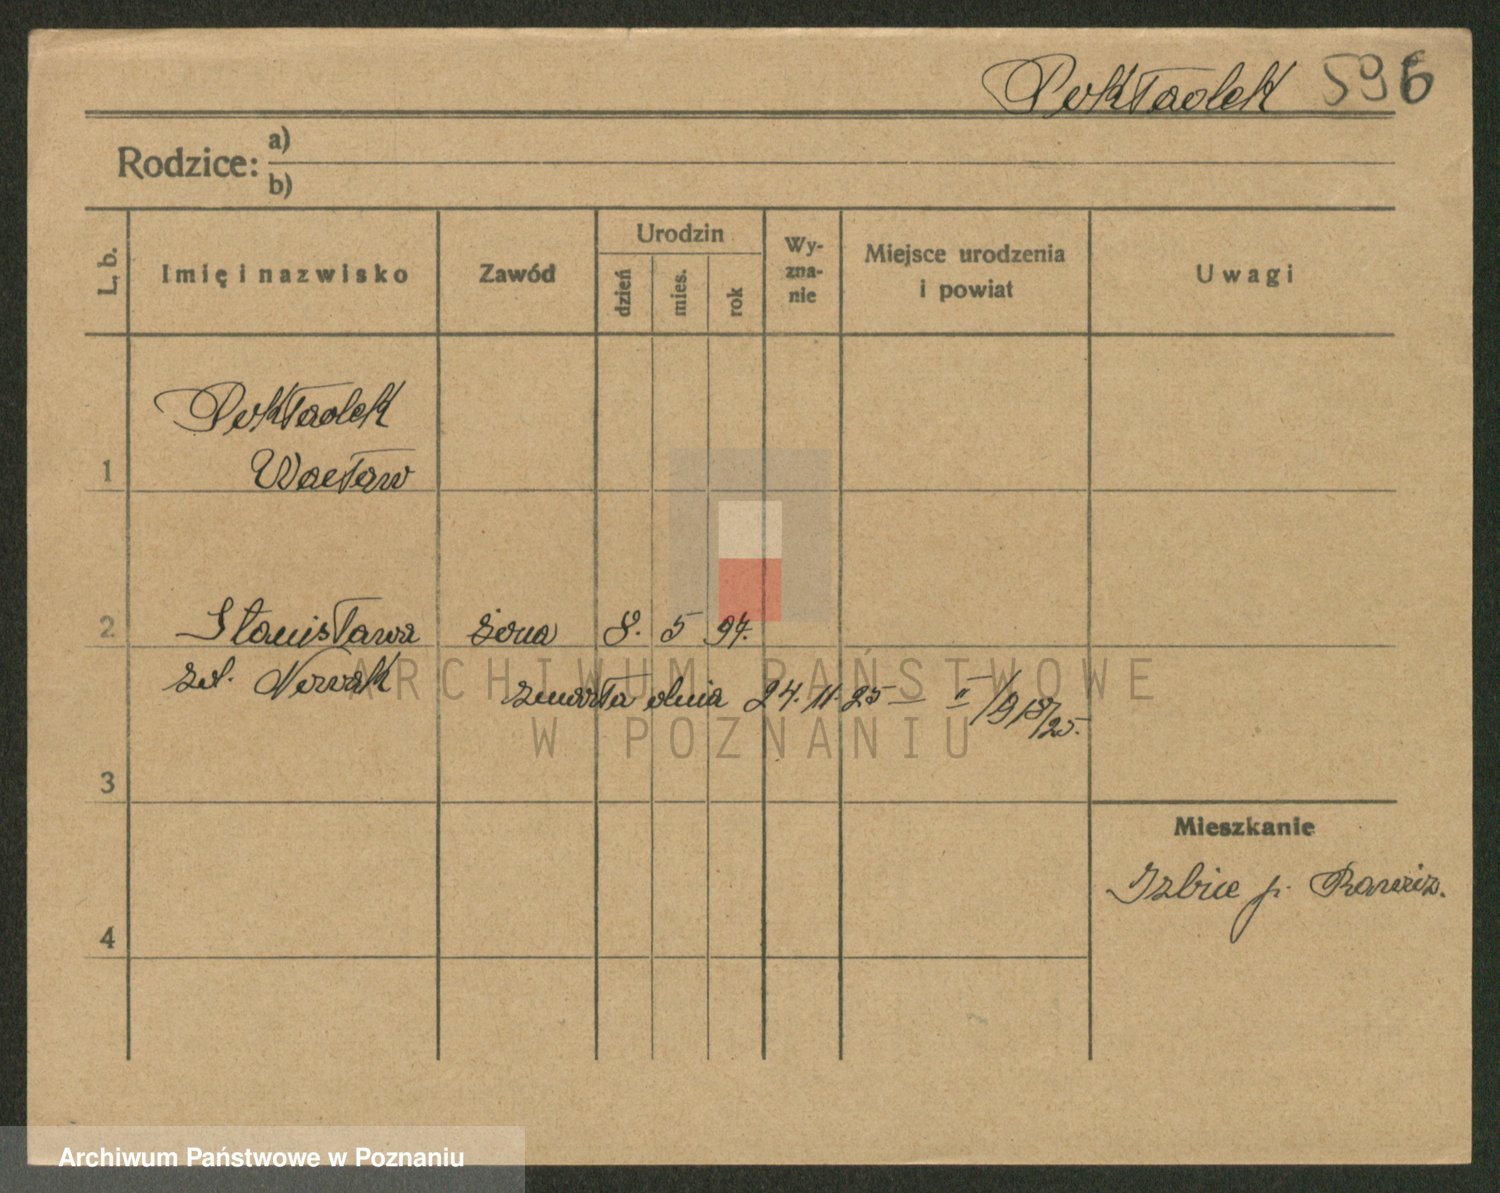 Pokładek 596
Rodzice: a)
b)
L. b.
Imię i nazwisko
Zawód
Urodzin
dzień
mies.
rok
Wy-
zna-
nie
Miejsce urodzenia
i powiat
Uwagi
Pokładek
1 Wacław
2 Stanisława żona 8. 5 97.
zd. Nowak
zmarła dnia 24. 11. 25 —
3
Mieszkanie
Izbice p. Rawicz.
4
ARCHIWUM PAŃSTWOWE
W POZNANIU
Archiwum Państwowe w Poznaniu